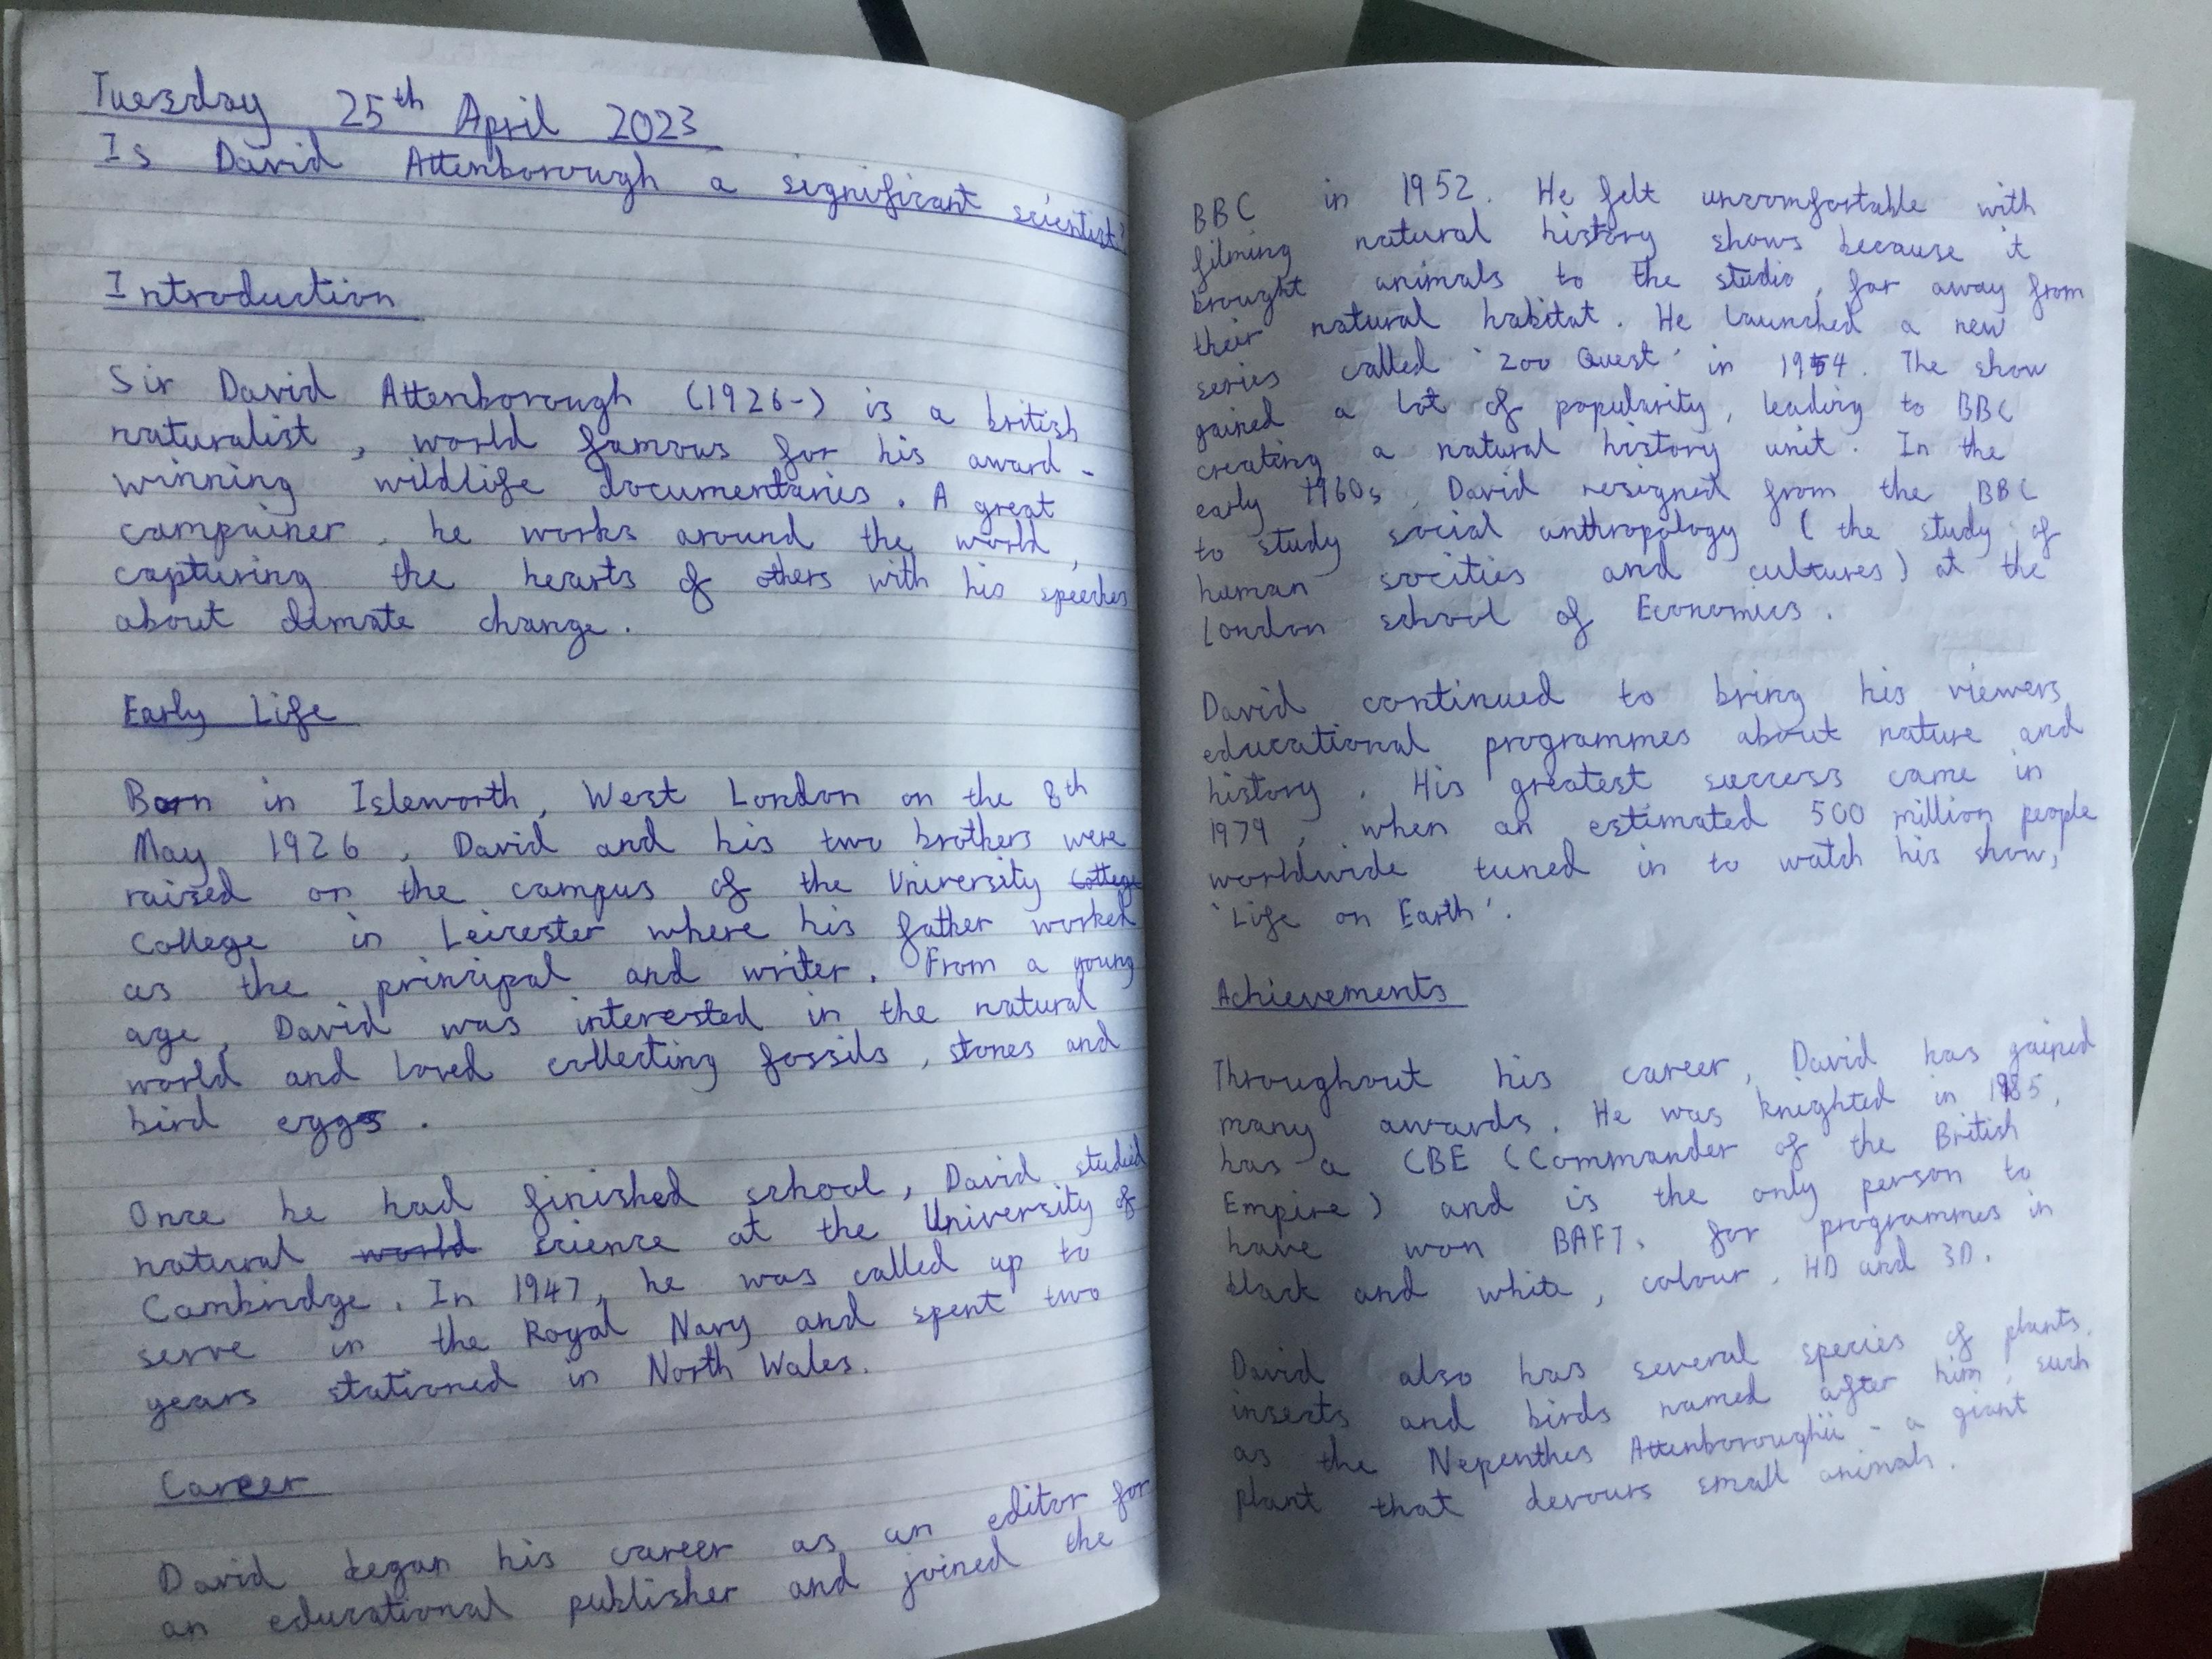 Tuesday 25th April 2023
Is David Attenborough a significant scientist?
Introduction
Sir David Attenborough (1926-) is a british
naturalist, world famous for his award-
winning wildlife documentaries. A great
campainer, he works around the world,
capturing the hearts of others with his speeches
about climate change.
Early Life
Born in Isleworth, West London on the 8th
May 1926, David and his two brothers were
raised on the campus of the University College
College in Leicester where his father worked
as the principal and writer. From a young
age, David was interested in the natural
world and loved collecting fossils, stones and
bird eggs.
Once he had finished school, David studied
natural world science at the University of
Cambridge. In 1947, he was called up to
serve in the Royal Navy and spent two
years stationed in North Wales.
Career
David began his career as an editor for
an educational publisher and joined the
BBC in 1952. He felt uncomfortable with
filming natural history shows because it
brought animals to the studio, far away from
their natural habitat. He launched a new
series called 'Zoo Quest' in 1954. The show
gained a lot of popularity, leading to BBC
creating a natural history unit. In the
early 1960s, David resigned from the BBC
to study social anthropology (the study of
human socities and cultures) at the
London school of Economics.
David continued to bring his viewers
educational programmes about nature and
history. His greatest success came in
1979, when an estimated 500 million people
worldwide tuned in to watch his show,
'Life on Earth'.
Achievements
Throughout his career, David has gained
many awards. He was knighted in 1985,
has a CBE (Commander of the British
Empire) and is the only person to
have won BAFTs for programmes in
black and white, colour, HD and 3D.
David also has several species of plants,
insects and birds named after him, such
as the Nepenthes Attenboroughii - a giant
plant that devours small animals.